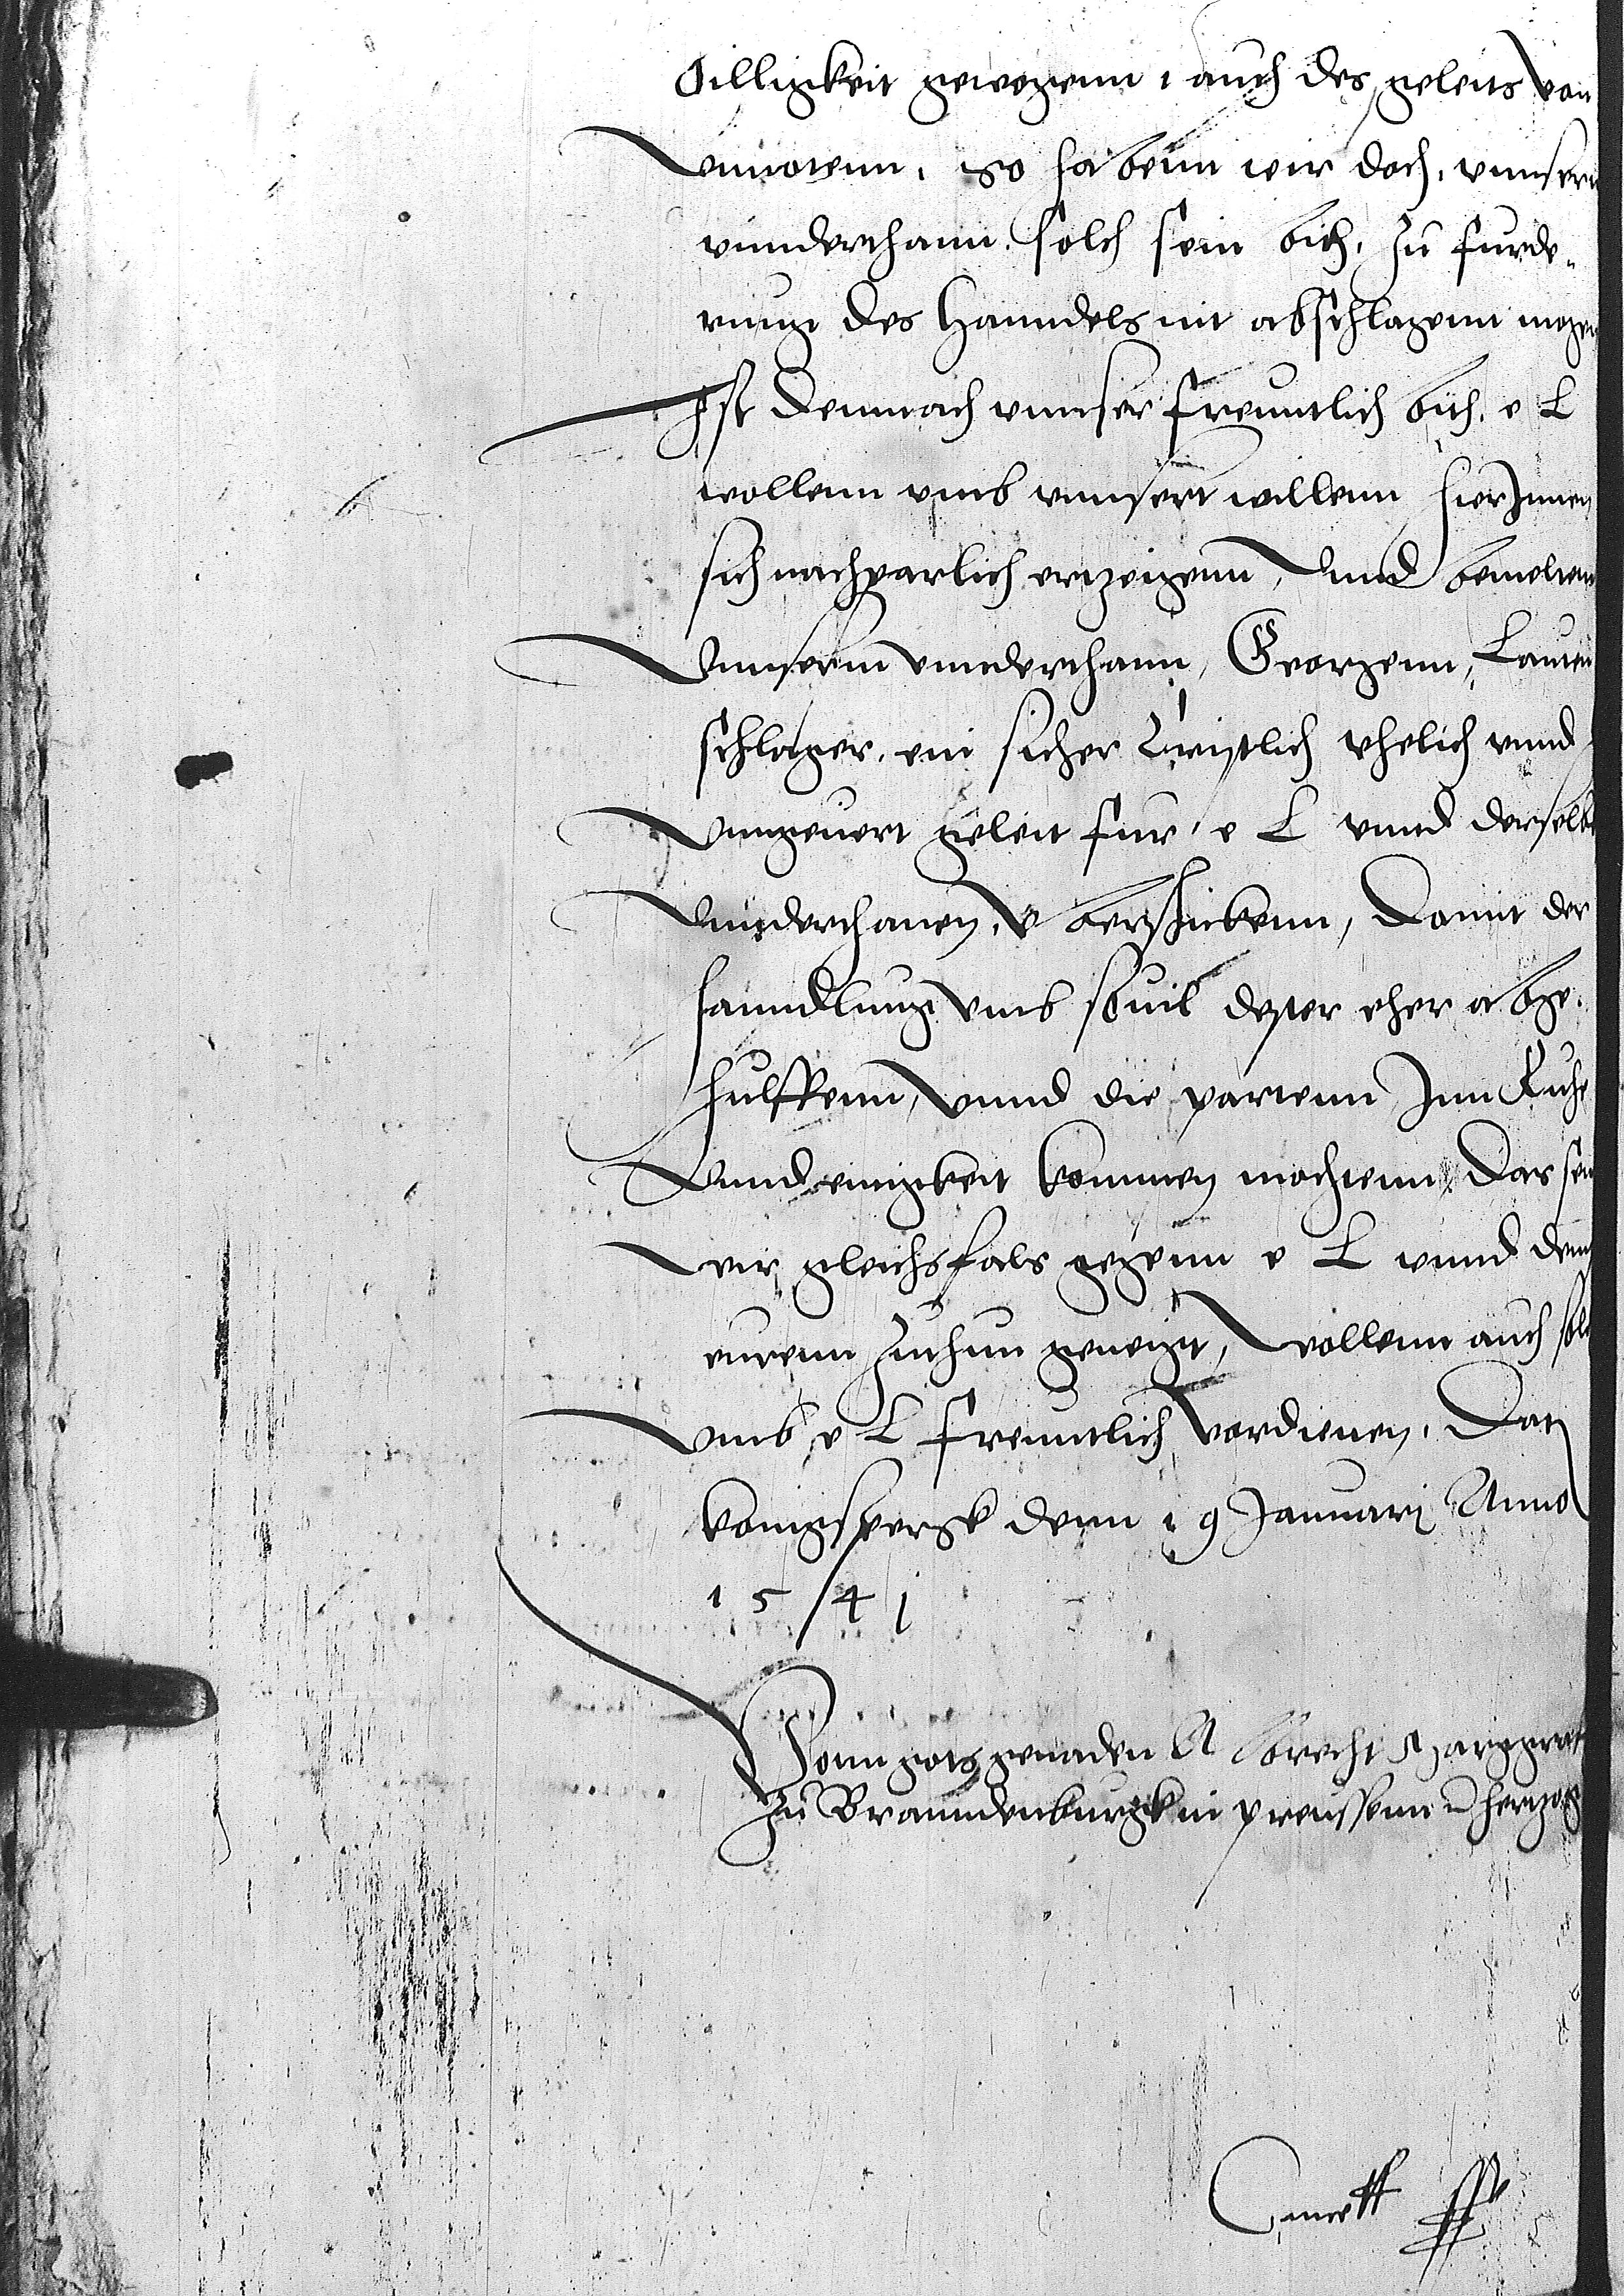 billigkeit gewogenn, auch des geleits von
vnnotenn, so habenn wir doch, vnnserm
vnnderthann, solch sein bith, zu furde„
rung des Hanndels nit abschlagenn mogen
Ist demnach vnnser freuntlich bith, e L
wollenn vmb vnnsert willenn hierInnen
sich nachparlich ertzeigenn, vnnd bemeltem
vnnserm vnnderthann, Georgenn, Lauten
schlager, ein sicher Cristlich ehelich vnnd
vnngeuert geleit fur, e L vnnd derselben
vnnderthanen, vberschickenn, Damit der
hanndlung vmb souil dester eher abge„
hulffenn, vnnd die partenn Inn Ruhe
vnnd einigkeit kommen mochtenn, Das sein
wir gleichsfals gegenn e L vnnd denn
eurenn zuthun geneigt, wollenn auch solchs
vmb e L freuntlich vordienen, Dat
konigspergk denn 19 Januarj Anno
1541
Vonn gots gnaden Albrecht Marggraf
zu Branndenburgk in preussenn hertzog